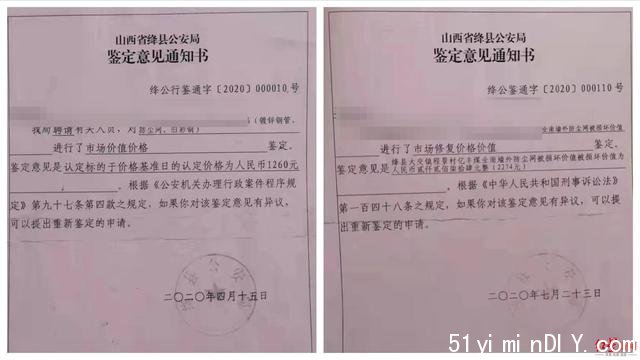 山西省绛县公安局
鉴定意见通知书
绛公行鉴通字〔2020〕000010号
(镀锌钢管、
我局聘请有关人员，对防尘网、旧彩钢)
进行了市场价值价格 鉴定。
鉴定意见是认定标的于价格基准日的认定价格为人民币1260元
。根据《公安机关办理行政案件程序规
定》第九十七条第四款之规定，如果你对该鉴定意见有异议，
可以提出重新鉴定的申请。
二〇二〇年四月十五日
山西省绛县公安局
鉴定意见通知书
绛公鉴通字〔2020〕000110号
业南墙外防尘网被损坏价值
进行了市场修复价格价值 鉴定。
绛县大交镇程景村亿丰煤业南墙外防尘网被损坏价值被损坏价值为
鉴定意见是人民币贰仟贰佰柒拾肆元整（2274元）
。根据《中华人民共和国刑事诉讼法》
第一百四十八条之规定，如果你对该鉴定意见有异议，可以
提出重新鉴定的申请。
二〇二〇年七月二十三日
51yiminDIY.com